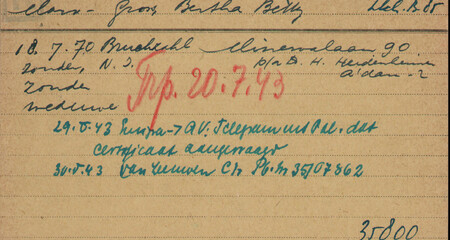 Marx - Gross Bertha Betty
18.7.70 Bruchsahl Minervalaan 90
zonder, N.I. p/a D. H. Heidenheimer
Zonder A'dam-Z
weduwe
Trp. 20.7.43
29.5.43 AV: Telegram uit Pal. dat
Certificaat aangevraagd
30.5.43 van Leeuwen Ch Pb. Nr 35/07862
35800